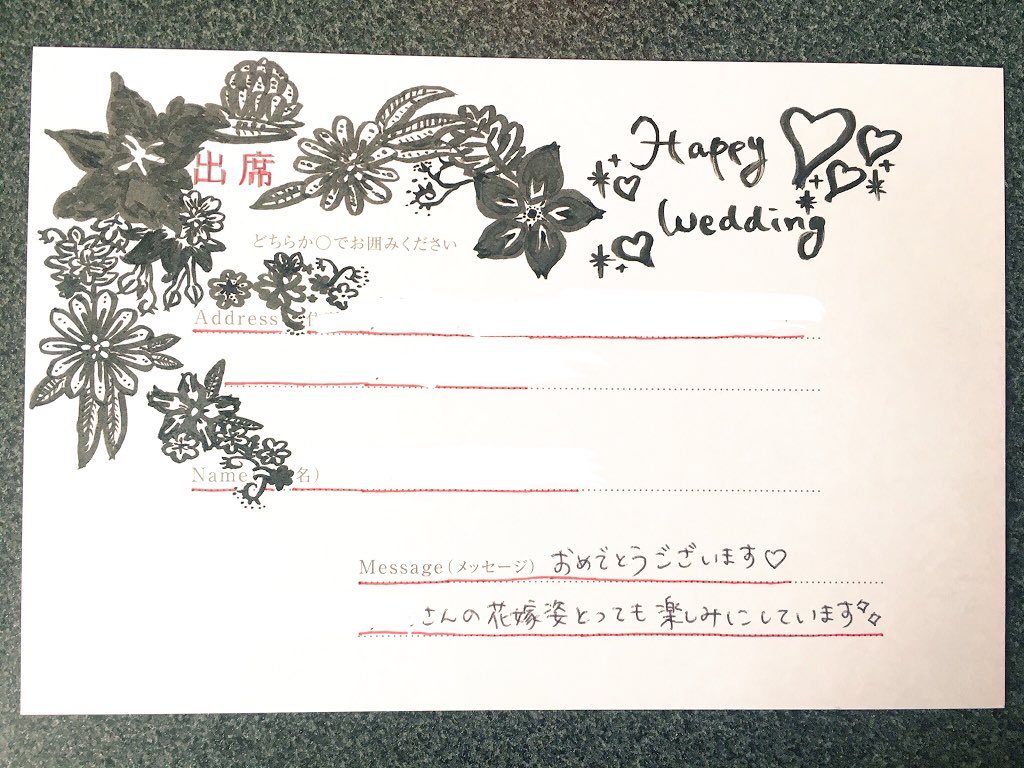 Happy
Wedding
出席
どちらか〇でお囲みください
Address
Name 名)
Message(メッセージ) おめでとうございます♡
さんの花嫁姿とっても楽しみにしています